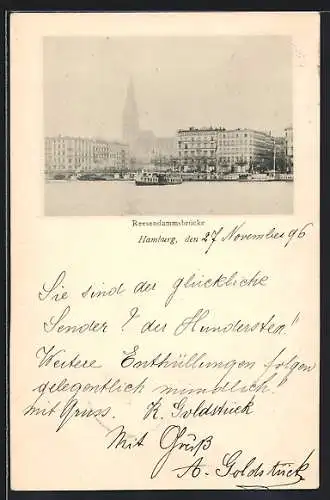 Reesendammsbrücke
Hamburg, den 27 November 96
Sie sind der glückliche
Sender ? der Hundersten!"
Weitere Enthüllungen folgen
gelegentlich mündlich!
mit Gruss. K. Goldstück
Mit Gruß
A. Goldstück